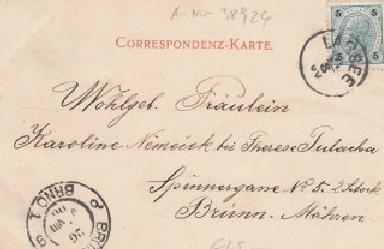 A-Nr 38924
CORRESPONDENZ-KARTE.
5 5
5 5
Wohlgeb. Fräulein
Karoline Němeček bei Therese Tulacha
Spinnergasse No 5. 2 Stock
Brünn. Mähren.
BRNO 1